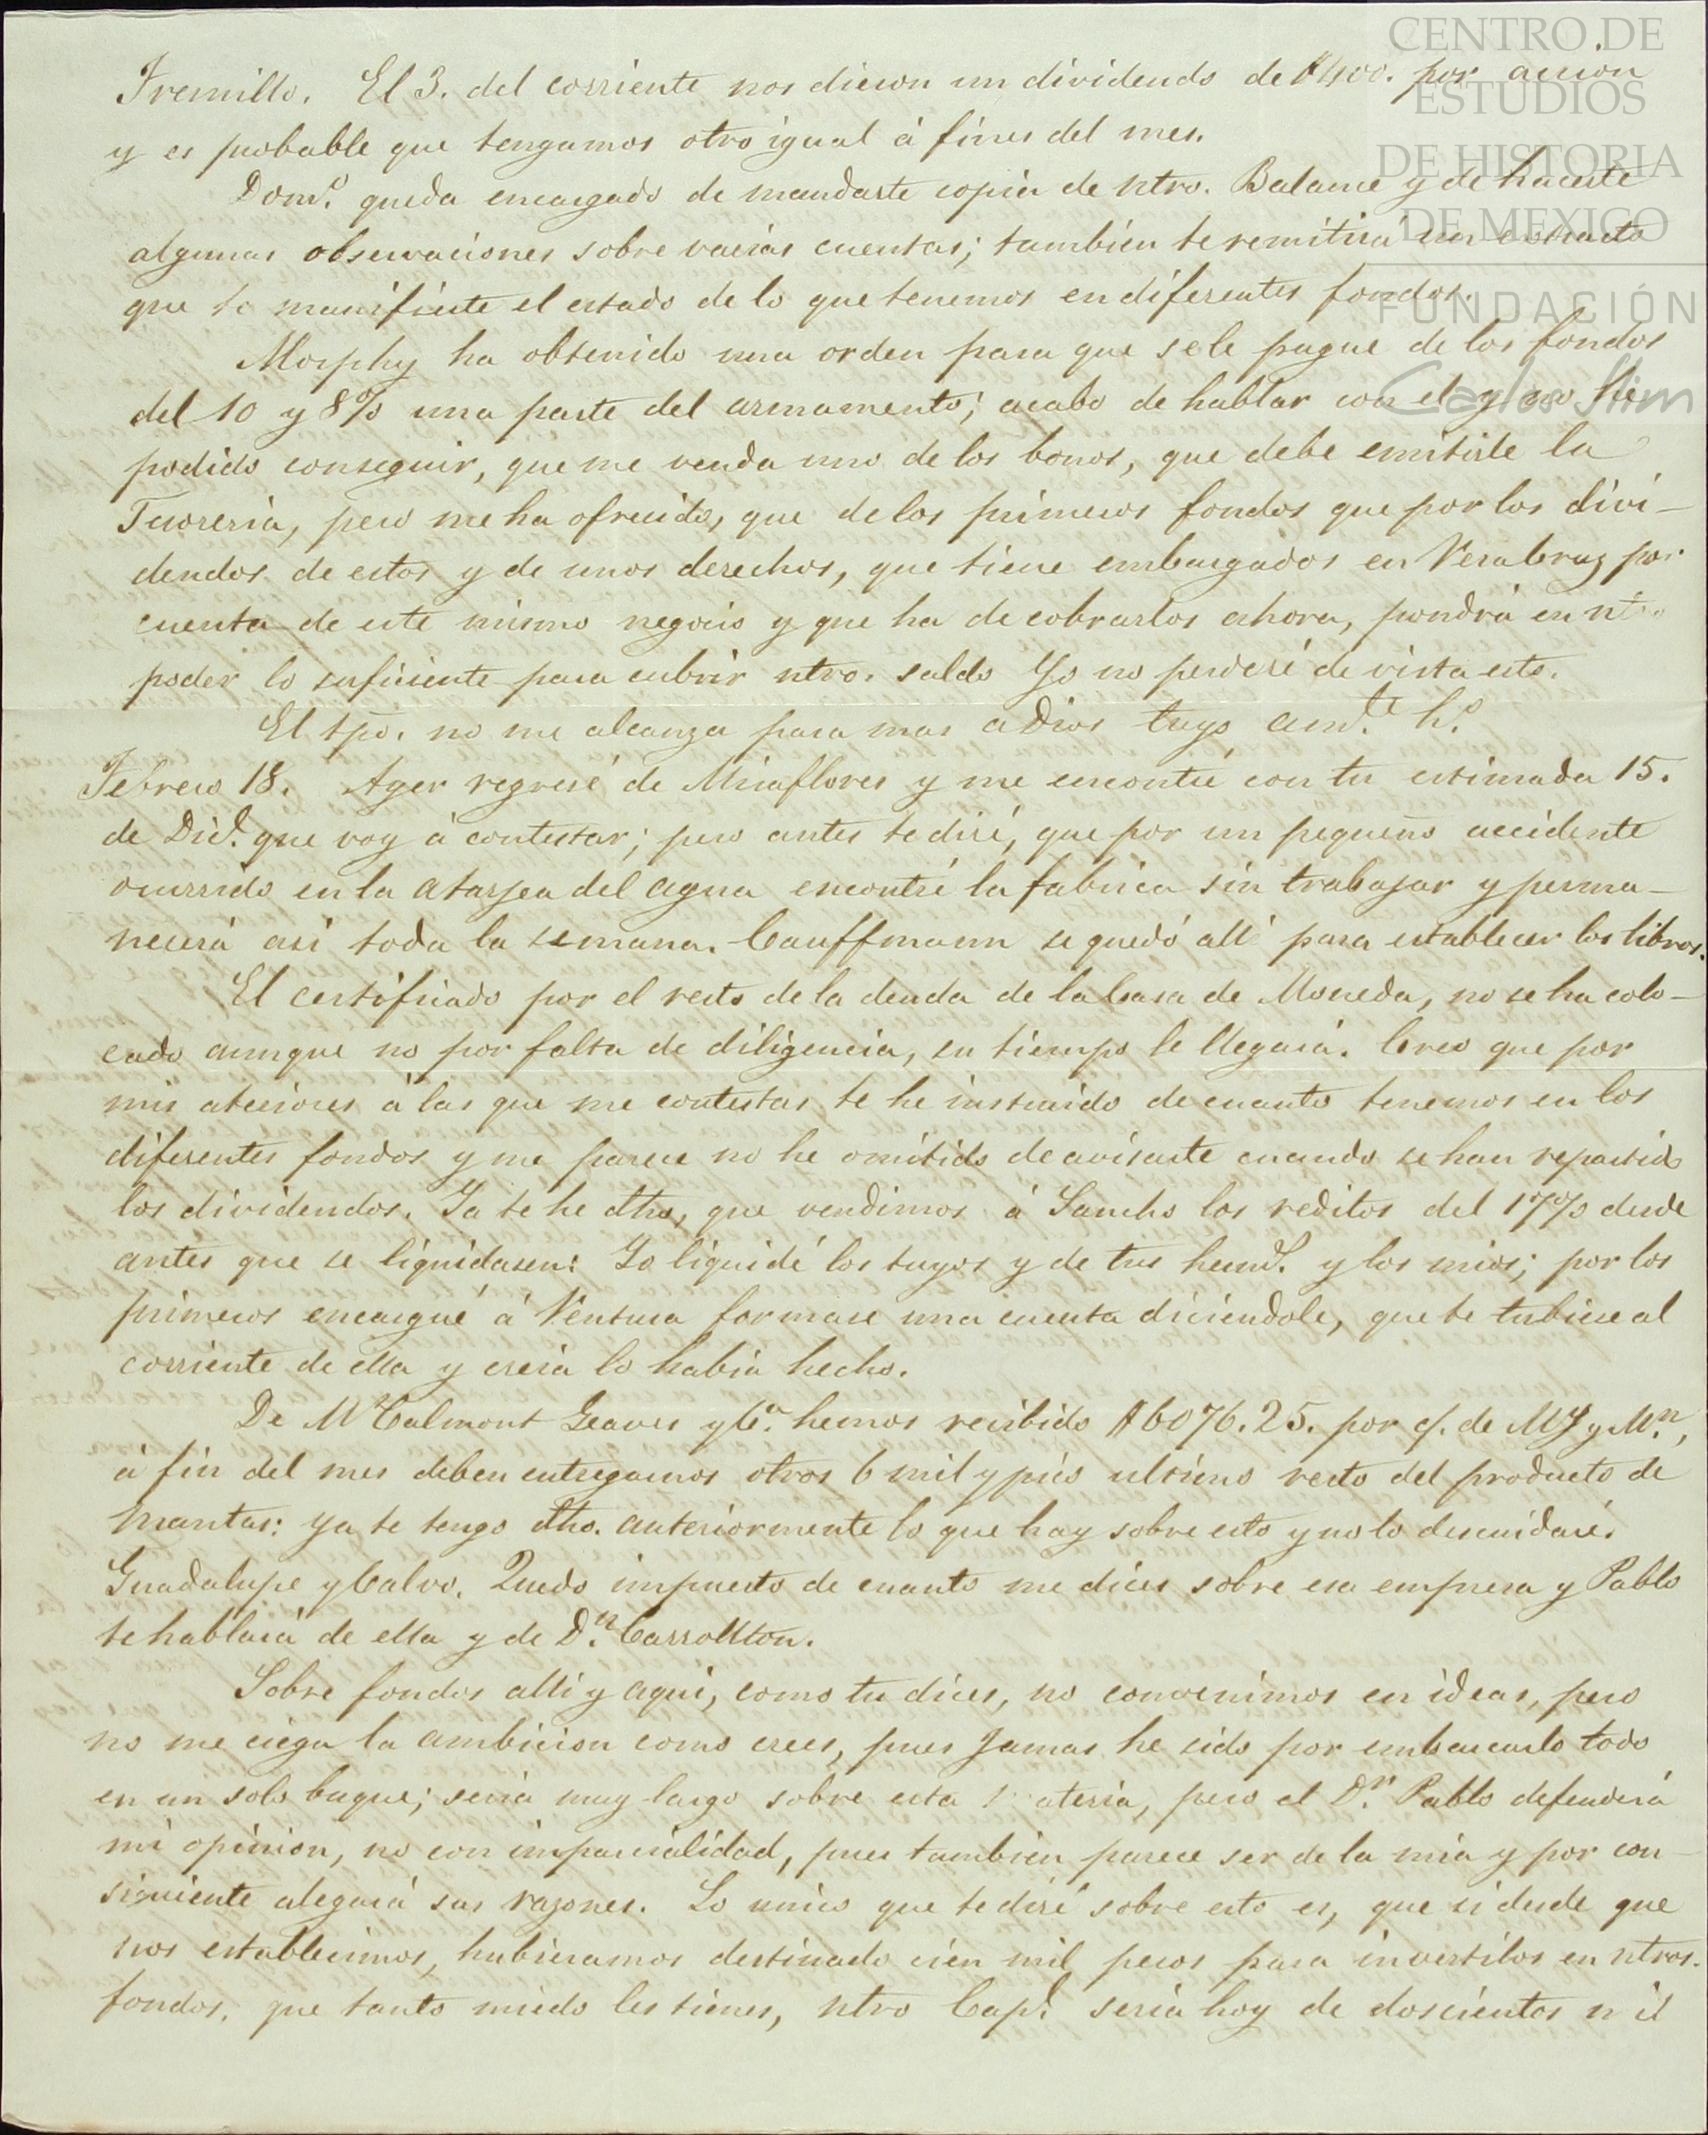 CENTRO DE
ESTUDIOS
DE HISTORIA
DE MEXICO
FUNDACIÓN
Carlos Slim
Fresnillo. El 3. del corriente nos dieron un dividendo de $400. por accion
y es probable que tengamos otro igual á fines del mes.
Dom.º queda encargado de mandarte copia de ntro. Balance y de hacerte
algunas observaciones sobre varias cuentas; tambien te remitirá un estracto
que te manifieste el estado de lo que tenemos en diferentes fondos.
Morphy ha obtenido una orden para que se le pague de los fondos
del 10 y 8% una parte del armamento; acabo de hablar con el y no he
podido conseguir, que me venda uno de los bonos, que debe emitirle la
Tesoreria, pero me ha ofrecido, que de los primeros fondos que por los divi-
dendos de estos y de unos derechos, que tiene embargados en VeraCruz por
cuenta de este mismo negocio y que ha de cobrarlos ahora, pondrá en ntro
poder lo suficiente para cubrir ntro. saldo Yo no perderé de vista esto.
El tpō. no me alcanza para mas aDios tuyo am.te h.º
Febrero 18. Ayer regresé de Miraflores y me encontré con tu estimada 15.
de Dic.e que voy á contestar; pero antes te diré, que por un pequeño accidente
ocurrido en la atarjea del agua encontré la fabrica sin trabajar y perma-
necerá asi toda la semana. Cauffmann se quedó alli para establecer los libros.
El certificado por el resto de la deuda de la Casa de Moneda, no se ha colo-
cado aunque no por falta de diligencia, su tiempo le llegará. Creo que por
mis anteriores á las que me contestas te he instruido de cuanto tenemos en los
diferentes fondos y me parece no he omitido de avisarte cuando se han repartido
los dividendos. Ya te he dho, que vendimos á Sancho los reditos del 17% desde
antes que se liquidasen: Yo liquidé los tuyos y de tus herm.s y los mios; por los
primeros encargué á Ventura formase una cuenta diciendole, que te tubiese al
corriente de ella y creia lo habia hecho.
De McCalmont Geaves y Ca. hemos recibido $6076.25. por c/. de MJ y Mn.,
á fin del mes deben entregarnos otros 6 mil y pico ultimo resto del producto de
mantas: ya te tengo dho. anteriormente lo que hay sobre esto y no lo descuidaré.
Guadalupe y Calvo. Quedo impuesto de cuanto me dices sobre esa empresa y Pablo
te hablará de ella y de D.n Carrollton.
Sobre fondos alli y aqui, como tu dices, no convenimos en ideas, pero
no me ciega la ambicion como crees, pues jamas he sido por embarcarlo todo
en un solo buque; seria muy largo sobre esta materia, pero el D.n Pablo defenderá
mi opinion, no con imparcialidad, pues tambien parece ser de la mia y por con-
siguiente alegará sus razones. Lo unico que te diré sobre esto es, que si desde que
nos establecimos, hubieramos destinado cien mil pesos para invertilos en ntros.
fondos, que tanto miedo les tienes, ntro Cap.l seria hoy de doscientos mil